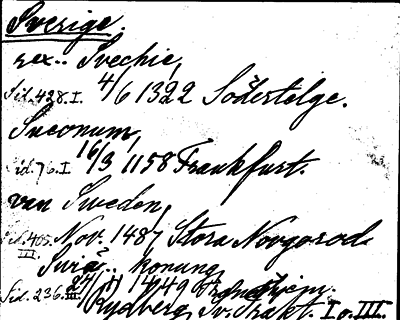 Sverige.
rex.. Svechie,
Sid. 428. I. 4/6 1322 Södertelge.
Sueonum,
Sid. 76. I 16/3 1158 Frankfurt.
van Sweden,
Sid. 405. III. Nov. 1487 Stora Novgorod
konung
Sid. 236. III. 1449
Rydberg Sv. Trakt. I o. III.